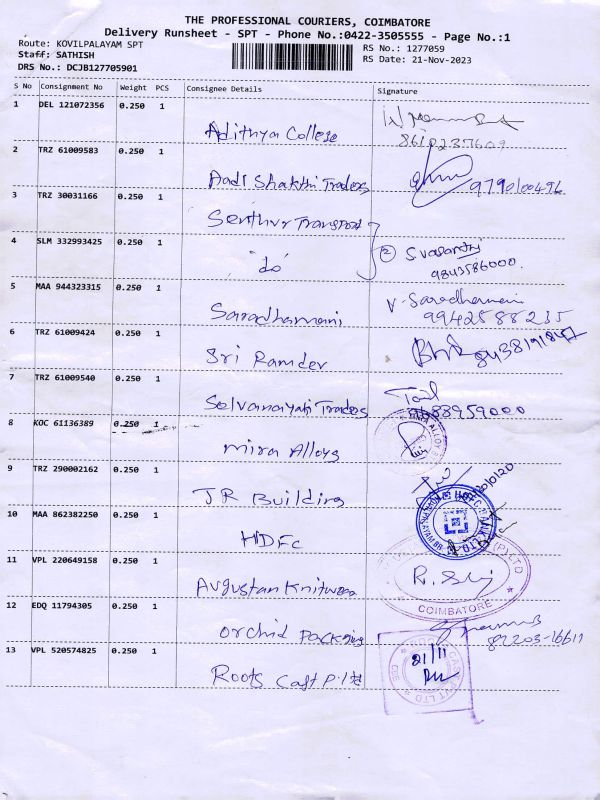 THE PROFESSIONAL COURIERS, COIMBATORE
Delivery Runsheet - SPT - Phone No.:0422-3505555 - Page No.:1
Route: KOVILPALAYAM SPT
RS No.: 1277059
Staff: SATHISH
RS Date: 21-Nov-2023
DRS No.: DCJB127705901
S No Consignment No Weight PCS Consignee Details Signature
1 DEL 121072356 0.250 1
Adithya College
8610237609
2 TRZ 61009583 0.250 1
Aadi Shakthi Traders
9790100496
3 TRZ 30031166 0.250 1
Senthur Transport
4 SLM 332993425 0.250 1
"do"
② Svasanthi
9843586000
5 MAA 944323315 0.250 1
Saradhamani
V. Saradhamani
9942588235
6 TRZ 61009424 0.250 1
Sri Ramdev
7 TRZ 61009540 0.250 1
Selvanayaki Traders
8 KOC 61136389 0.250 1
Mira Alloys
9 TRZ 290002162 0.250 1
JR Building
10 MAA 862382250 0.250 1
HDFC
11 VPL 220649158 0.250 1
Augustan Knitwear
(P) LTD
COIMBATORE
12 EDQ 11794305 0.250 1
Orchid Packing
87203-16611
13 VPL 520574825 0.250 1
Roots Cast P. ltd
21/11